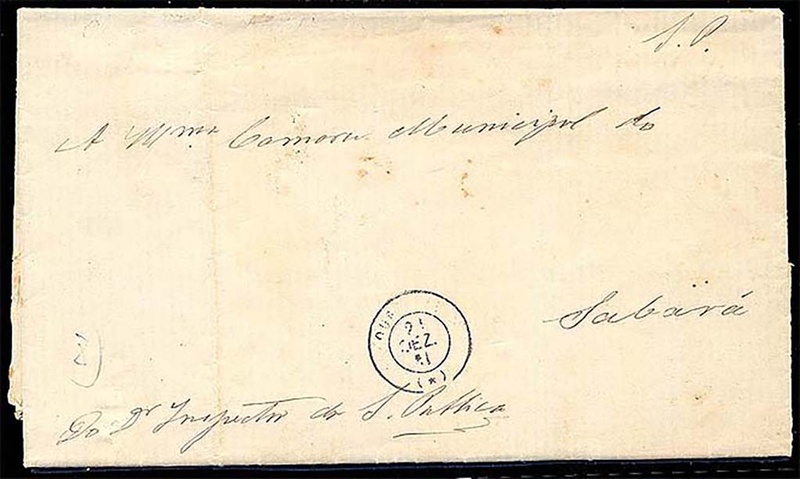 S. P.
A Illma Camara Municipal do
Sabará
OUR
21
DEZ.
81
(*)
Do Dr Inspector do S. Publica